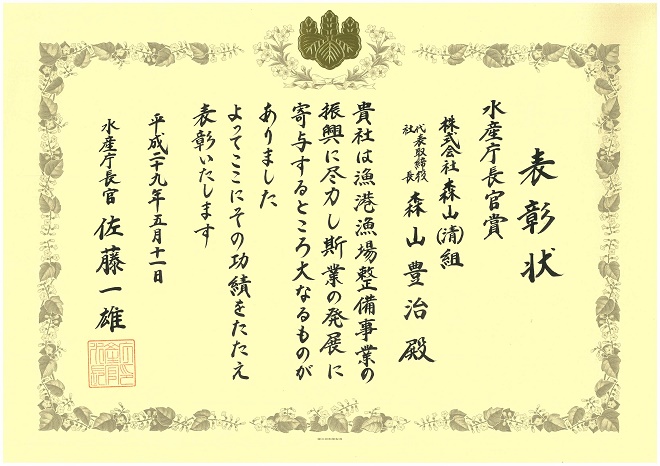 表彰状
水産庁長官賞
株式会社 森山(清)組
代表取締役社長 森山豊治殿
貴社は漁港漁場整備事業の
振興に尽力し斯業の発展に
寄与するところ大なるものが
ありました
よってここにその功績をたたえ
表彰いたします
平成二十九年五月十一日
水産庁長官 佐藤一雄